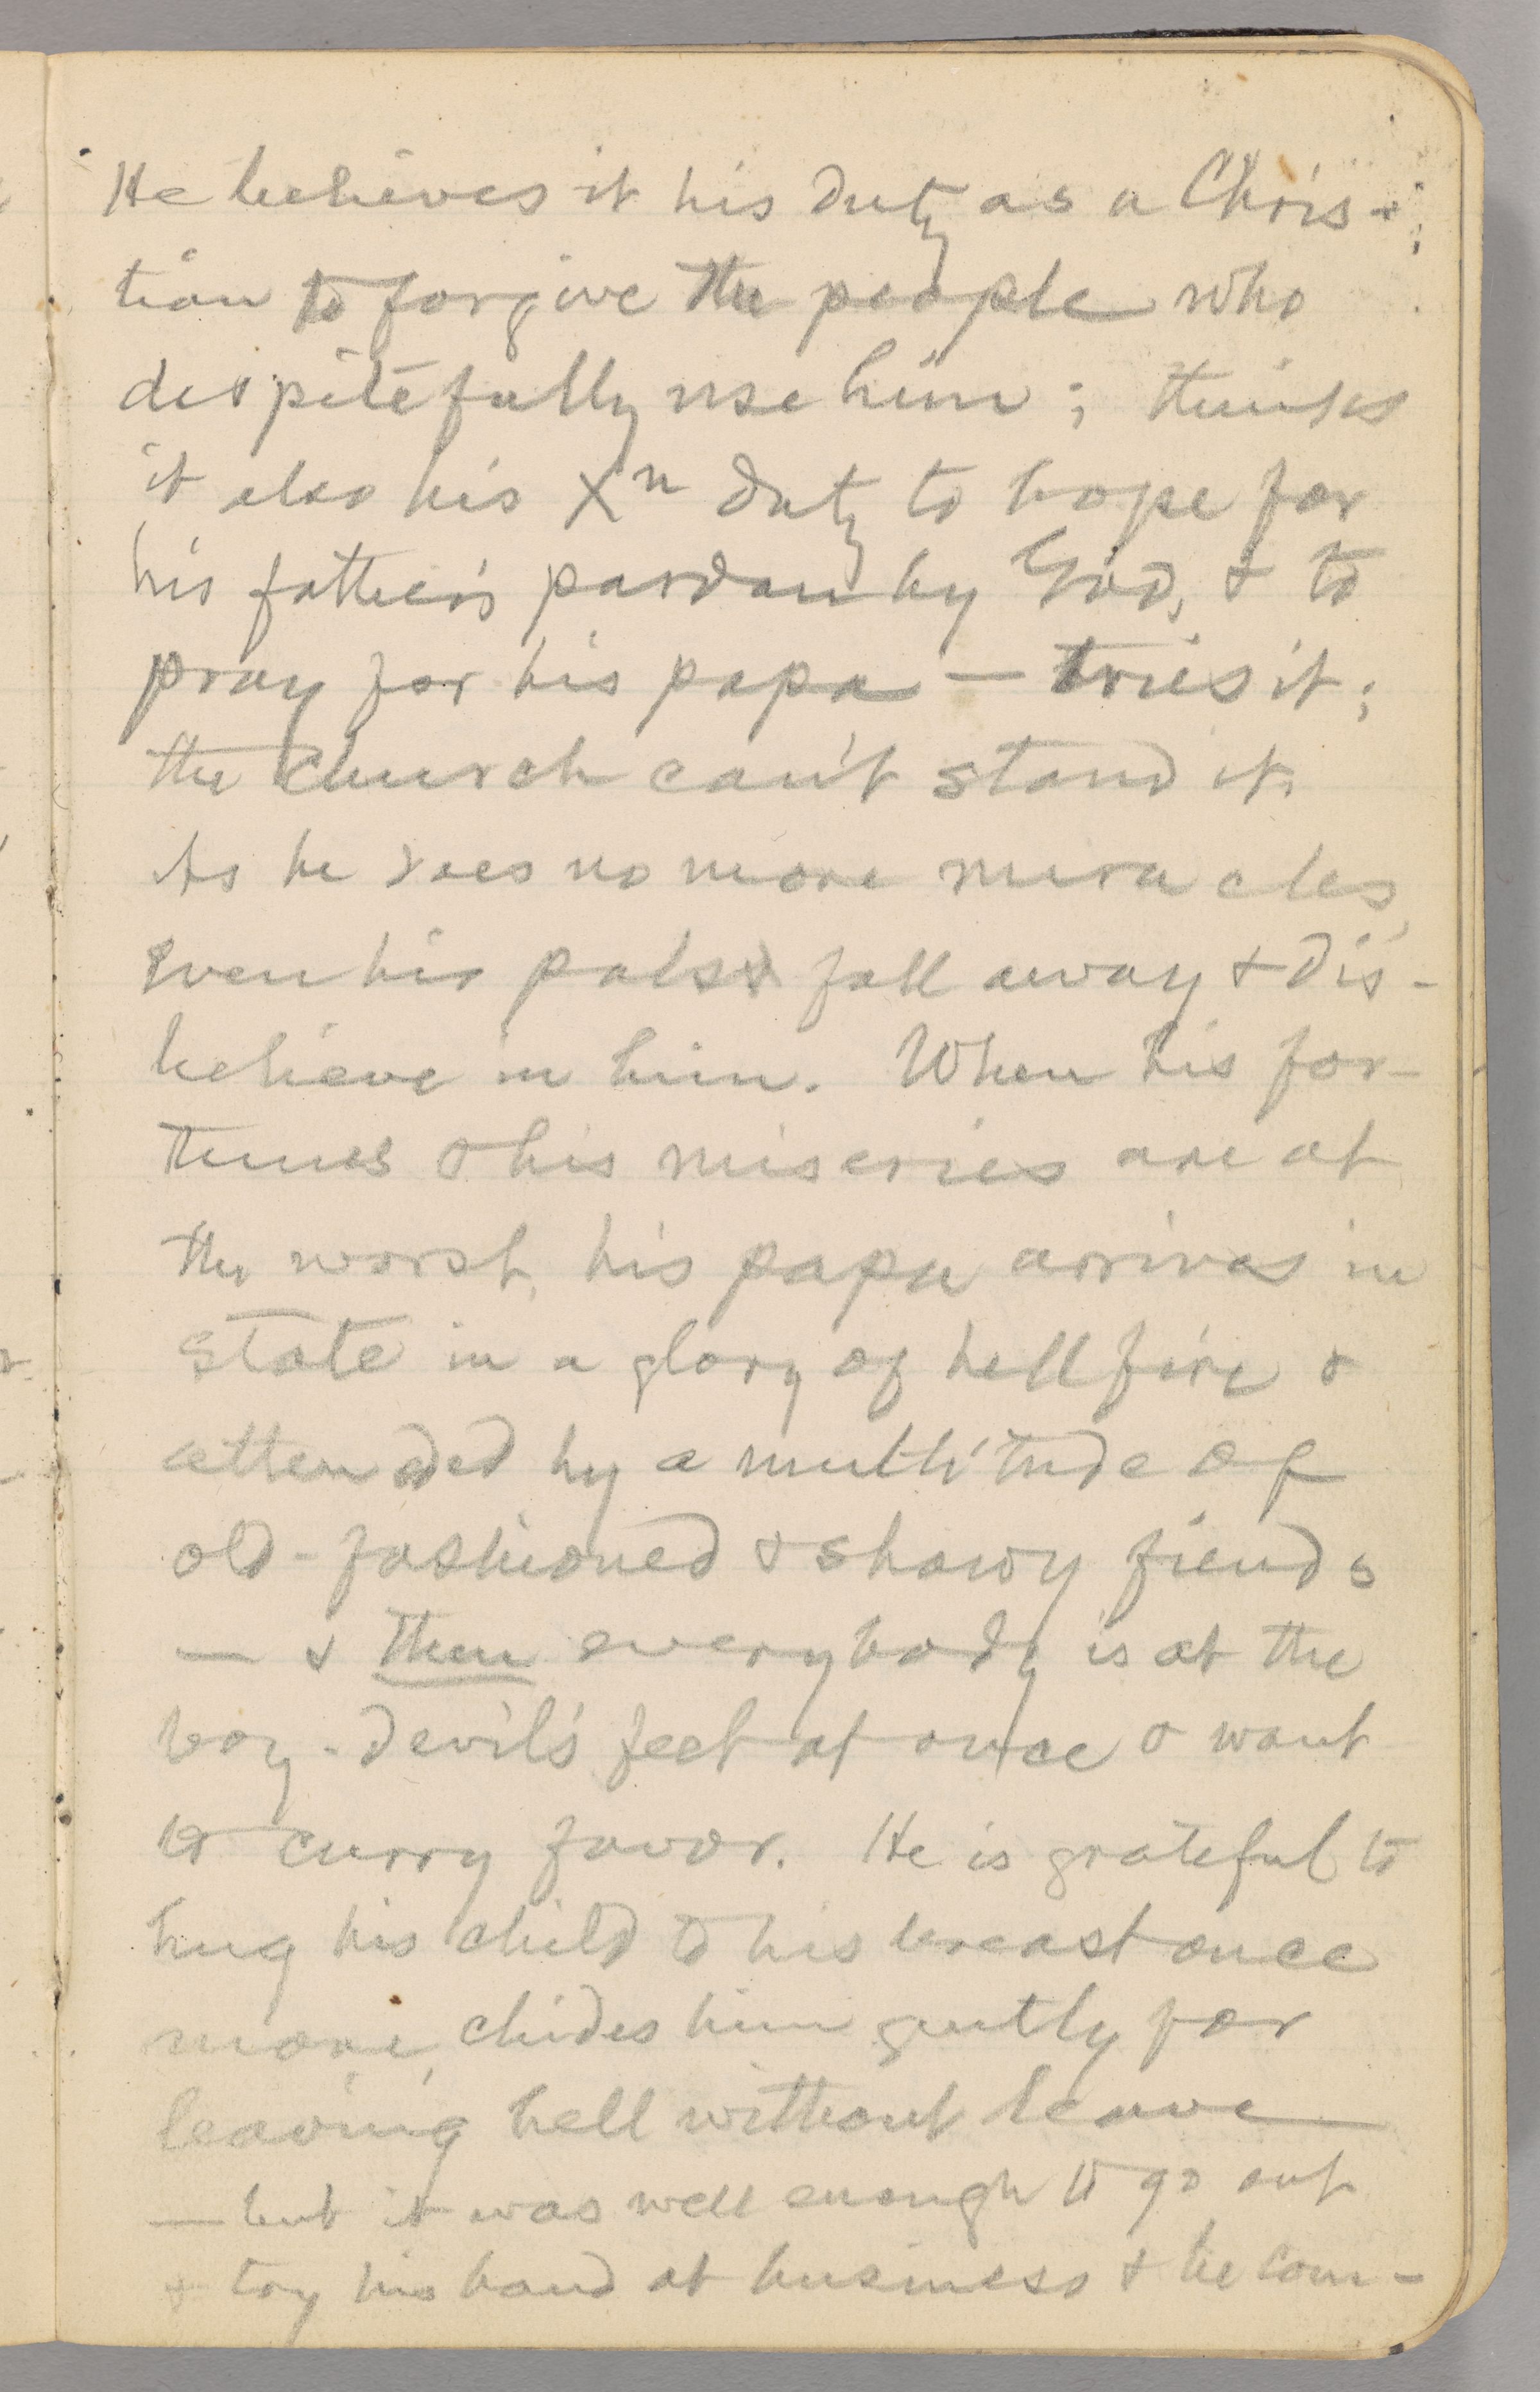 He believes it his duty as a Chris-
tian to forgive the people who
despitefully use him; thinks
it also his Xn duty to hope for
his father's pardon by God, & to
pray for his papa — tries it;
the church can't stand it.
As he does no more miracles,
even his pals fall away & dis-
believe in him. When his for-
tunes & his miseries are at
the worst, his papa arrives in
state in a glory of hellfire &
attended by a multitude of
old-fashioned & showy fiends
— & then everybody is at the
boy-devil's feet at once & want
to curry favor. He is grateful to
hug his child to his breast once
more, chides him gently for
leaving hell without leave
— but it was well enough to go out
& try his hand at business & he com-